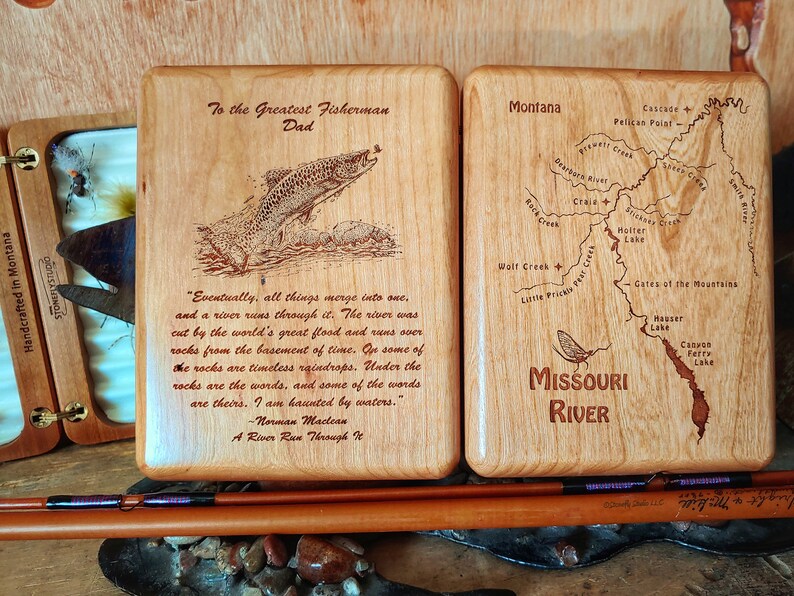 To the Greatest Fisherman
Dad
“Eventually, all things merge into one,
and a river runs through it. The river was
cut by the world's great flood and runs over
rocks from the basement of time. On some of
the rocks are timeless raindrops. Under the
rocks are the words, and some of the words
are theirs. I am haunted by waters.”
~Norman Maclean
A River Run Through It
Montana
Cascade
Pelican Point
Prewett Creek
Sheep Creek
Smith River
Dearborn River
Craig
Rock Creek
Stickney Creek
Holter
Lake
Wolf Creek
Little Prickly Pear Creek
Gates of the Mountains
Hauser
Lake
Canyon
Ferry
Lake
MISSOURI
RIVER
Handcrafted in Montana
STONEFLYSTUDIO